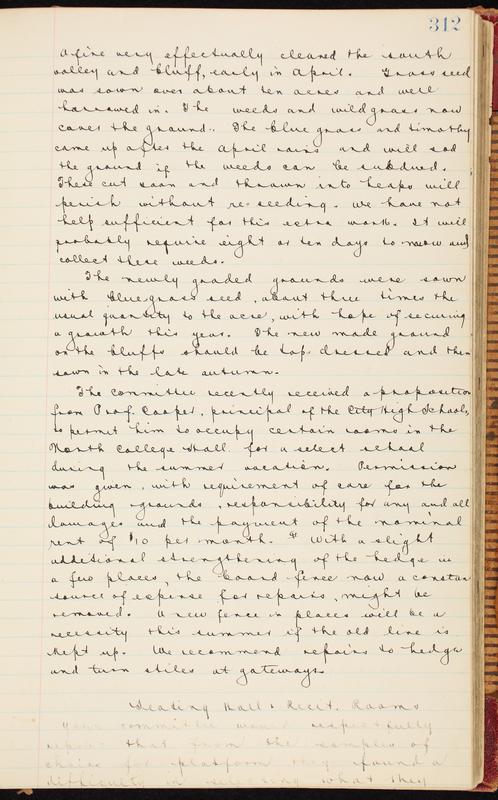 312
A fire very effectually cleaned the south
valley and bluff, early in April. Grass seed
was sown over about ten acres and well
harrowed in. The weeds and wild grass now
cover the ground. The blue grass and timothy
came up after the April rains and will sod
the ground if the weeds can be subdued.
These cut soon and thrown into heaps will
perish without re-seeding. We have not
help sufficient for this extra work. It will
probably require eight or ten days to mow and
collect these weeds.
The newly graded grounds were sown
with bluegrass seed, about three times the
usual quantity to the acre, with hope of securing
a growth this year. The new made ground
on the bluffs should be top dressed and then
sown in the late autumn.
The committee recently received a proposition
from Prof. Cooper, principal of the City High Schools,
to permit him to occupy certain rooms in the
North College Hall for a select school
during the summer vacation. Permission
was given, with requirement of care for the
building grounds, responsibility for any and all
damages and the payment of the nominal
rent of $10 per month. With a slight
additional strengthening of the hedge in
a few places, the board fence now a constant
source of expense for repairs, might be
removed. A new fence in places will be a
necessity this summer if the old line is
kept up. We recommend repairs to hedge
and turn stiles at gateways.
Seating Hall & Recit. Rooms
Your committee would respectfully
report that from the samples of
chairs for platform they found a
difficulty in selecting what they